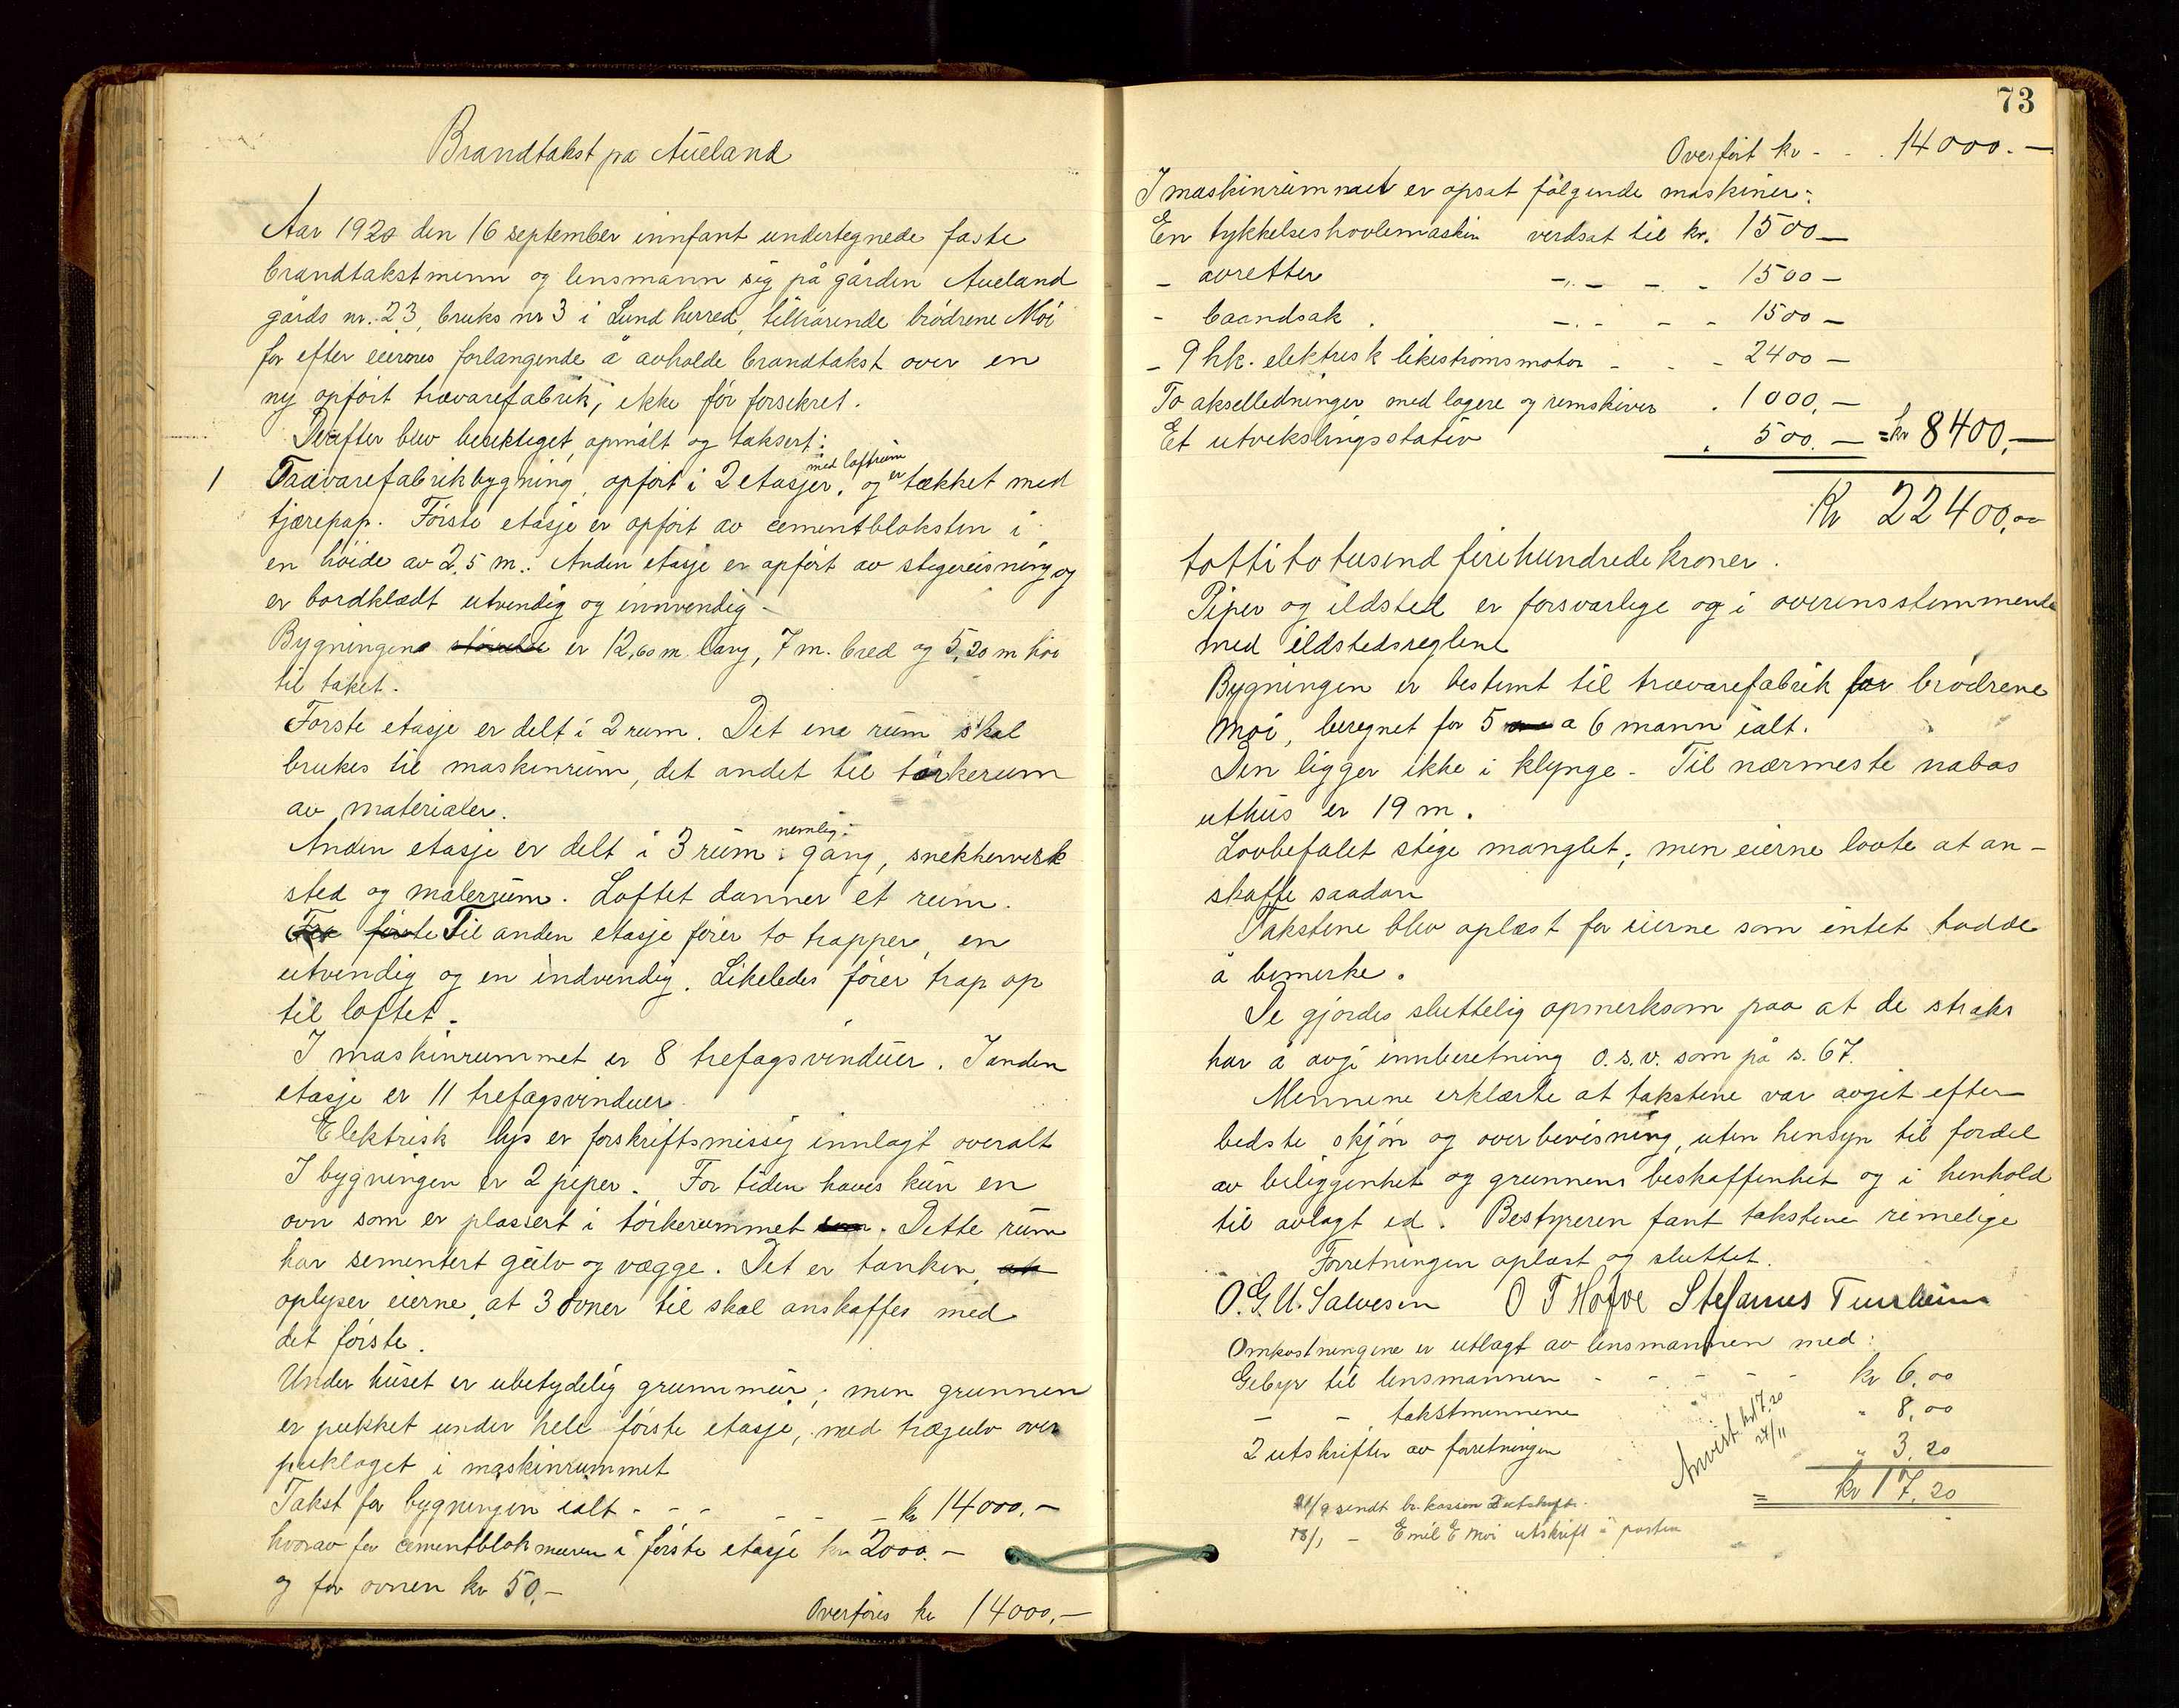 Brandtakst pa Aueland
Aar 1920 den 16 september innfant undertegnede faste
brandtakstmenn og lensmann sig på gården Aueland
gårds nr. 23, bruks nr 3 i Lund herred, tilhørende brødrene Moi
for efter eiernes forlangende å avholde brandtakst over en
ny opført trævarefabrik, ikke før forsikret.
Derefter blev besiktiget, opmålt og taksert:
1 Trævarefabrikbygning, opført i 2 etasjer, med loftrum og er tækket med
tjærepap. Første etasje er opført av cementbloksten i
en høide av 2,5 m. Anden etasje er opført av stegereisning og
er bordklædt utvendig og innvendig.
Bygningen er 12,60 m. lang, 7 m. bred og 5,20 m høi
til taket.
Første etasje er delt i 2 rum. Det ene rum skal
brukes til maskinrum, det andet til tørkerum
av materialer.
Anden etasje er delt i 3 rum nemlig: gang, snekkerverk
sted og malerrum. Loftet danner et rum.
Til anden etasje fører to trapper, en
utvendig og en indvendig. Likeledes fører trap op
til loftet.
I maskinrummet er 8 trefagsvinduer. I anden
etasje er 11 trefagsvinduer.
Elektrisk lys er forskriftsmissig innlagt overalt
I bygningen er 2 piper. For tiden haves kun en
ovn som er plassert i tørkerummet. Dette rum
har sementert gulv og vægge. Det er tanken,
oplyser eierne, at 3 ovner til skal anskaffes med
det første.
Under huset er ubetydelig grunnmur; men grunnen
er pukket under hele første etasje, med trægulv over
puklaget i maskinrummet
Takst for bygningen ialt - - - - - - kr 14000.-
hvorav for cementblokmuren i første etasje kr 2000.-
og for ovnen kr 50,-
Overføres kr 14000,-
73
Overført kr - - . 14000.-
I maskinrummet er opsat følgende maskiner:
En tykkelseshøvlemaskin verdsat til kr. 1500 -
- avretter -.- - - 1500 -
- baandsak . -.- - - 1500 -
- 9 hk. elektrisk likestrømsmotor - - - 2400 -
To akselledninger med lagere og remskiver . 1000,-
Et utvekslingsstativ . 500.- = kr 8400,-
Kr 22400,00
tottito tusend firehundrede kroner.
Piper og ildsted er forsvarlige og i overensstemmende
med ildstedsreglene
Bygningen er bestemt til trævarefabrik for brødrene
Moi, beregnet for 5 a 6 mann ialt.
Den ligger ikke i klynge. Til nærmeste nabos
uthus er 19 m.
Lovbefalet stige manglet; men eierne lovte at an-
skaffe saadan
Takstene blev oplæst for eierne som intet hadde
å bemerke.
De gjordes sluttelig opmerksom paa at de straks
har å avgi innberetning o.s.v. som på s. 67.
Mennene erklærte at takstene var avgit efter
bedste skjøn og overbevisning, uten hensyn til fordel
av beliggenhet og grunnens beskaffenhet og i henhold
til avlagt ed. Bestyreren fant takstene rimelige
Forretningen oplæst og sluttet.
O.G.U. Salvesen O T Hofve Stefanus
Omkostningene er utlagt av lensmannen med:
Gebyr til lensmannen - - - - - kr 6,00
- - takstmennene " 8,00
2 utskrifter av forretningen " 3,20
= kr 17,20
Anvist kr 17,20
24/11
21/9 sendt br. kassen utskrift.
18/1 - Emil E Moi utskrift i posten